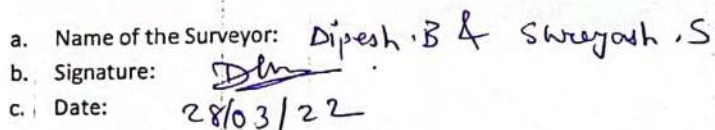 a. Name of the Surveyor: Dipesh .B & Shreyash .S
b. Signature:
c. Date: 28/03/22